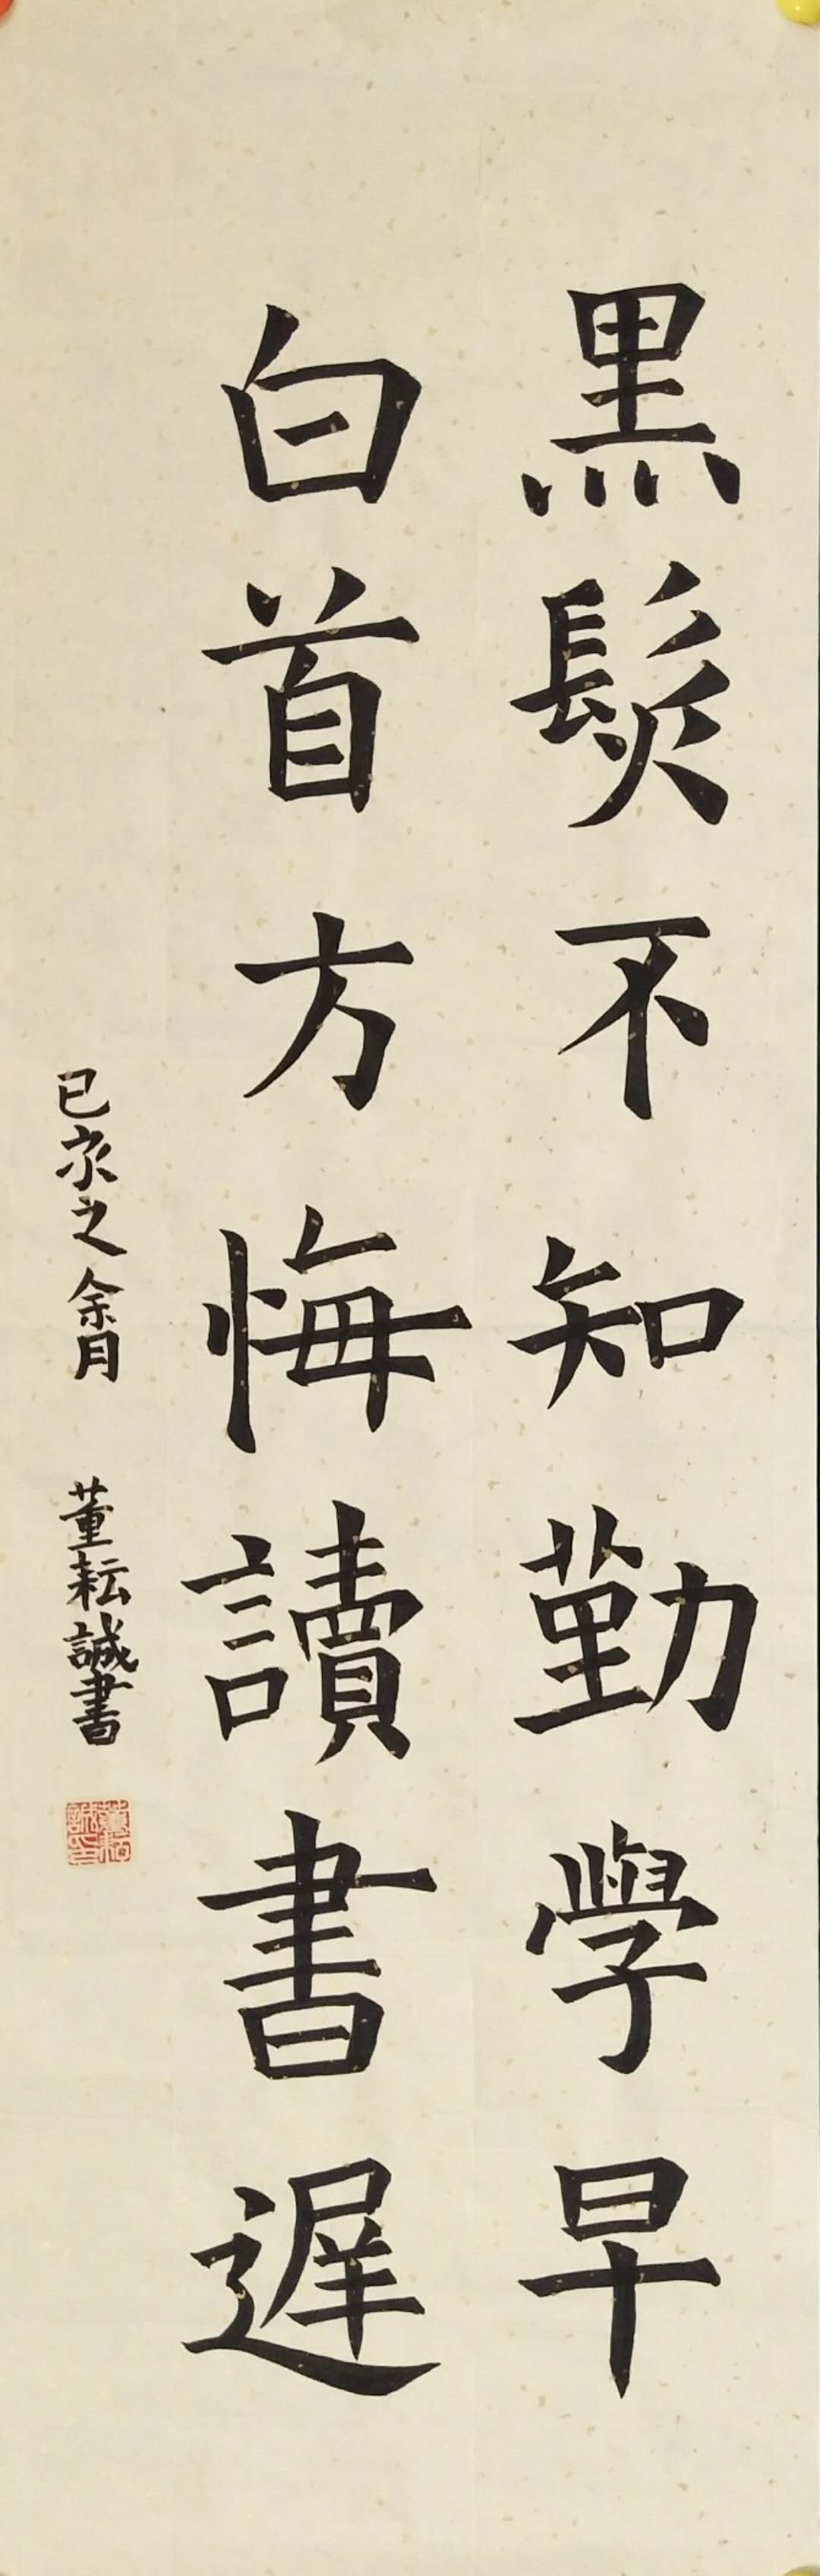 黑髮不知勤學早
白首方悔讀書遲
已亥之余月 董耘誠書